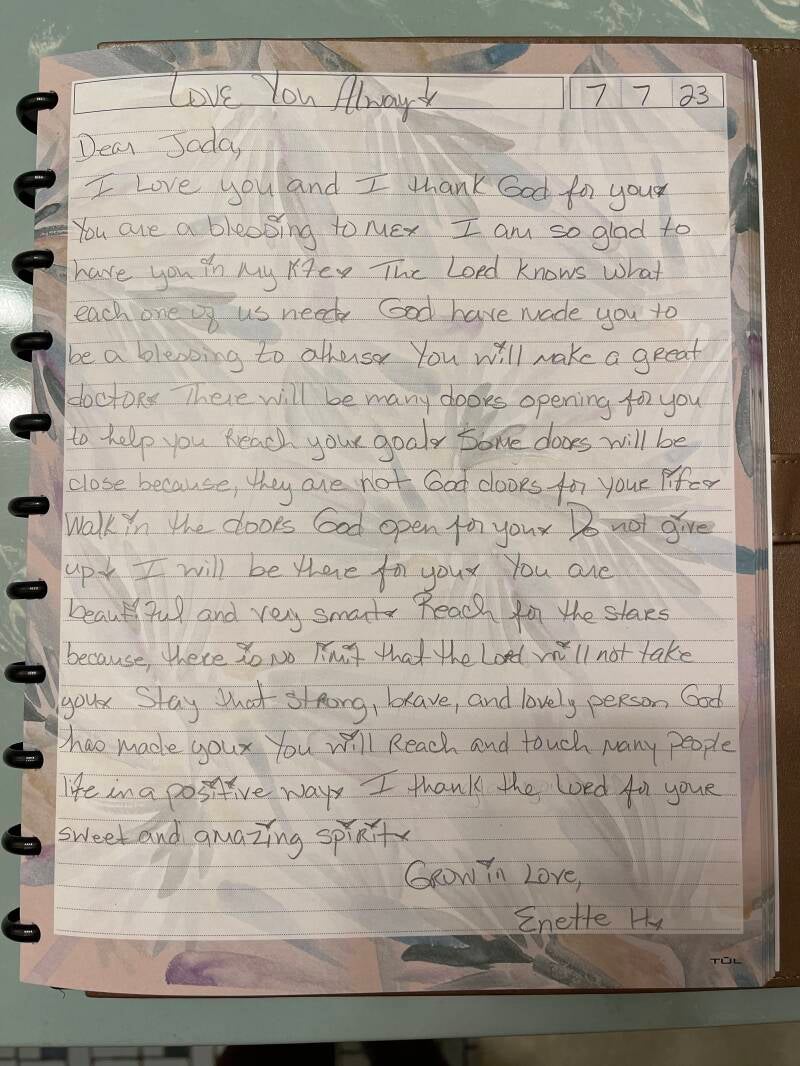 Love You Alway.
7 7 23
Dear Jada,
I Love you and I thank God for you.
You are a blessing to me. I am so glad to
have you in my life. The Lord knows what
each one of us need. God have made you to
be a blessing to others. You will make a great
doctor. There will be many doors opening for you
to help you reach your goal. Some doors will be
close because, they are not God doors for your life.
Walk in the doors God open for you. Do not give
up. I will be there for you. You are
beautiful and very smart. Reach for the stars
because, there is no limit that the Lord will not take
you. Stay that strong, brave, and lovely person God
has made you. You will reach and touch many people
life in a positive way. I thank the Lord for your
sweet and amazing spirit.
Grow in Love,
Enette H.
TUL